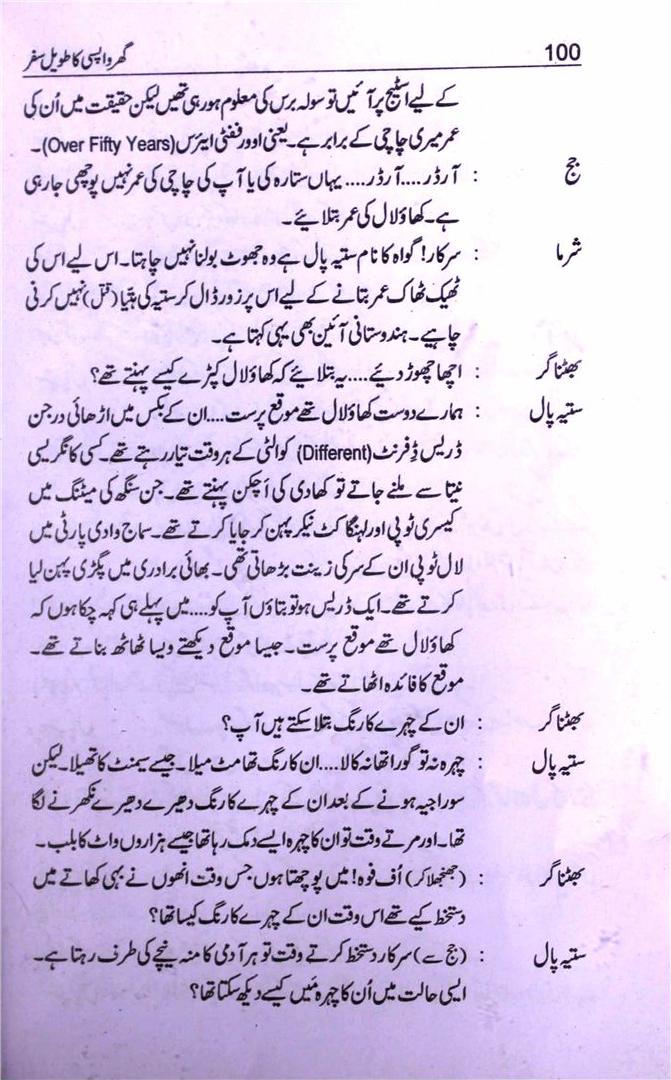 100 گھر واپسی کا طویل سفر
کے لیے اسٹیج پر آئیں تو سولہ برس کی معلوم ہورہی تھیں لیکن حقیقت میں اُن کی
عمر میری چاچی کے برابر ہے۔ یعنی اوور ففٹی ایئرس (Over Fifty Years)۔
جج : آرڈر....آرڈر.... یہاں ستارہ کی یا آپ کی چاچی کی عمر نہیں پوچھی جارہی
ہے۔ کھاؤلال کی عمر بتلائیے۔
شرما : سرکار! گواہ کا نام ستیہ پال ہے وہ جھوٹ بولنا نہیں چاہتا۔ اس لیے اس کی
ٹھیک ٹھاک عمر بتانے کے لیے اس پر زور ڈال کر ستیہ کی ہتیّا (قتل) نہیں کرنی
چاہیے۔ ہندوستانی آئین بھی یہی کہتا ہے۔
بھٹناگر : اچھا چھوڑ دیئے.... یہ بتلائیے کہ کھاؤلال کپڑے کیسے پہنتے تھے؟
ستیہ پال : ہمارے دوست کھاؤلال تھے موقع پرست....ان کے بکس میں اڑھائی درجن
ڈریس ڈِفرنٹ (Different) کوالٹی کے ہر وقت تیار رہتے تھے۔ کسی کانگریسی
نیتا سے ملنے جاتے تو کھادی کی اَچکن پہنتے تھے۔ جن سنگھ کی میٹنگ میں
کیسری ٹوپی اور لہنگا کٹ نیکر پہن کر جایا کرتے تھے۔ سماج وادی پارٹی میں
لال ٹوپی ان کے سر کی زینت بڑھاتی تھی۔ بھائی برادری میں پگڑی پہن لیا
کرتے تھے۔ ایک ڈریس ہو تو بتاؤں آپ کو....میں پہلے ہی کہہ چکا ہوں کہ
کھاؤلال تھے موقع پرست۔ جیسا موقع دیکھتے ویسا ٹھاٹھ بناتے تھے۔
موقع کا فائدہ اٹھاتے تھے۔
بھٹناگر : ان کے چہرے کا رنگ بتلا سکتے ہیں آپ؟
ستیہ پال : چہرہ نہ تو گورا تھا نہ کالا....ان کا رنگ تھا مٹ میلا۔ جیسے سیمنٹ کا تھیلا۔ لیکن
سوراجیہ ہونے کے بعد ان کے چہرے کا رنگ دھیرے دھیرے نکھرنے لگا
تھا۔ اور مرتے وقت تو ان کا چہرہ ایسے دمک رہا تھا جیسے ہزاروں واٹ کا بلب۔
بھٹناگر : (جھنجھلاکر) اُف فوہ! میں پوچھتا ہوں جس وقت انھوں نے بہی کھاتے میں
دستخط کیے تھے اس وقت ان کے چہرے کا رنگ کیسا تھا؟
ستیہ پال : (جج سے) سرکار دستخط کرتے وقت تو ہر آدمی کا منہ نیچے کی طرف رہتا ہے۔
ایسی حالت میں اُن کا چہرہ مَیں کیسے دیکھ سکتا تھا؟